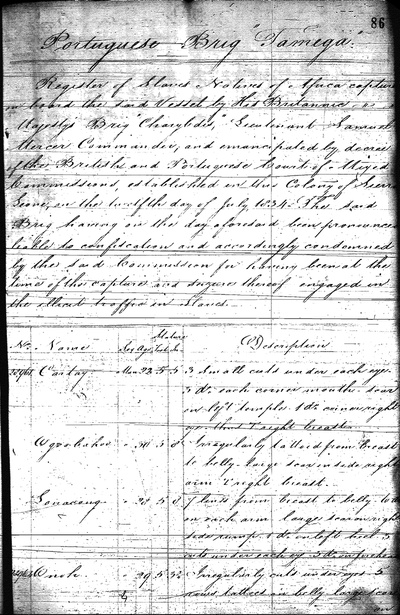 86
Portuguese Brig "Tamega"
Register of Slaves Natives of Africa captured
on board the said Vessel by His Britannic
Majestys Brig "Charybdis," Lieutenant Samuel
Mercer Commander, and emancipated by decree
of the British and Portuguese Court of Mixed
Commissions, established in this Colony of Sierra
Leone, on the twelfth day of July 1834. The said
Brig having on the day aforesaid been pronounced
liable to confiscation and accordingly condemned
by the said Commission for having been at the
time of the capture and seizure thereof engaged in
the illicit traffic in slaves.
Stature
No. Name Sex Age Feet In Description
Carlay Man 23 5 5 3 small cuts under each eye
3 do. each corner mouth scar
on left temple 1 do. corner right
eye right breast
30 5 Irregularly tattooed from breast
to belly large scar inside right
arm & right breast
5 7 lines from breast to belly
on each arm large scar on right
side rump 1 do. on left heel 3
cuts under each eye
29 5 Irregularly cuts under eyes 5
rows tattooed on belly large scar
on